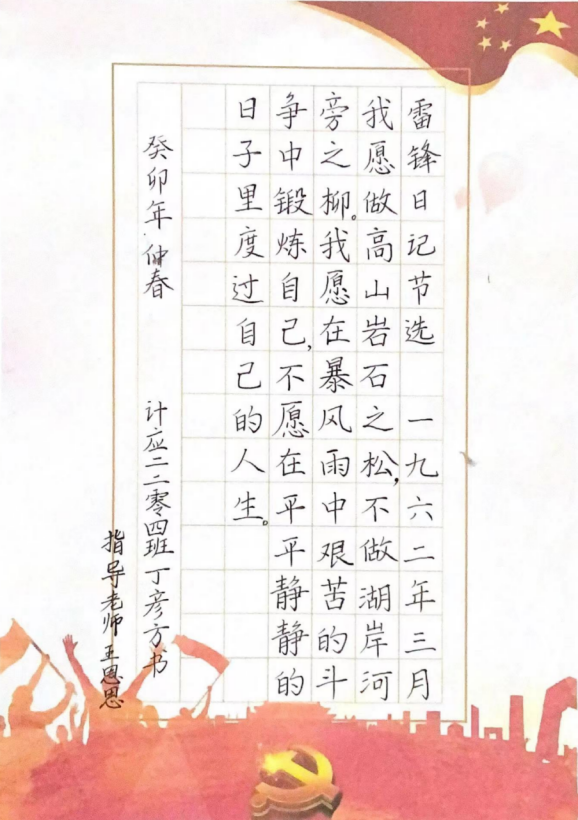 雷锋日记节选 一九六二年三月
我愿做高山岩石之松,不做湖岸河
旁之柳。我愿在暴风雨中艰苦的斗
争中锻炼自己,不愿在平平静静的
日子里度过自己的人生。
癸卯年仲春 计应二二零四班丁彦方书
指导老师王恩恩